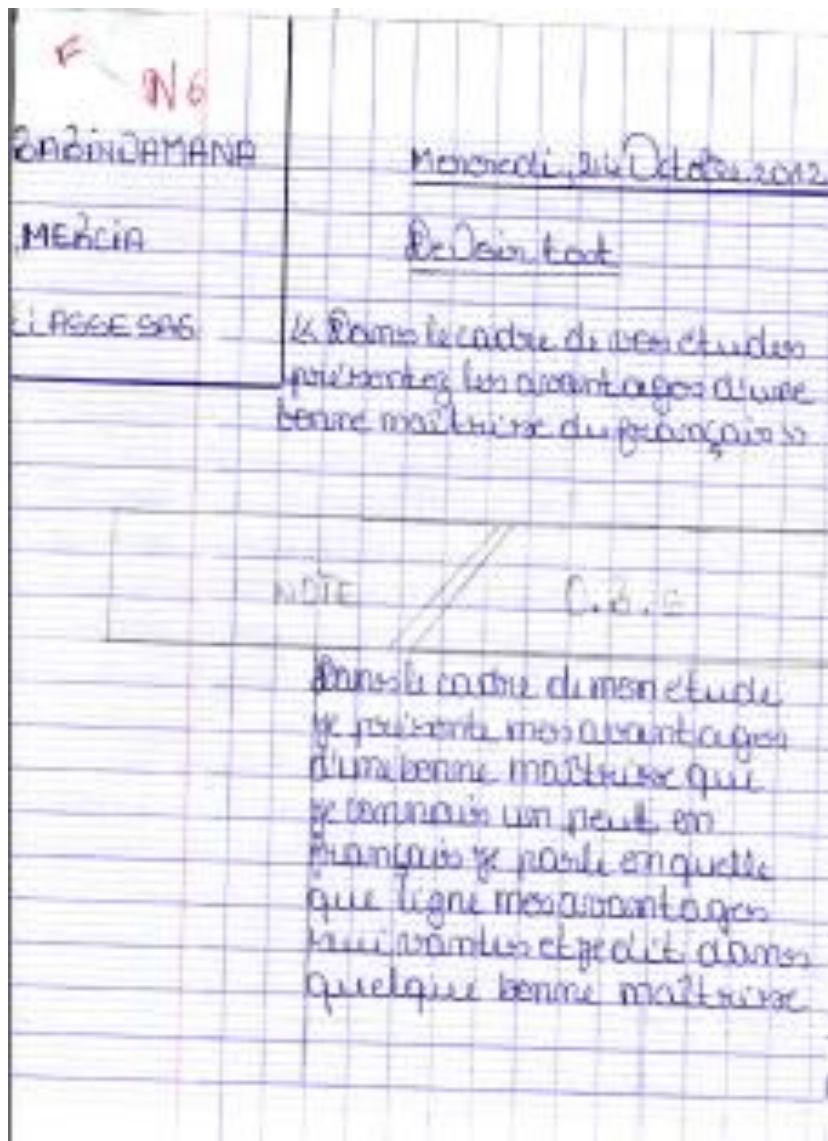 F N6
BABINDAMANA
MERCIA
CLASSE SAS
Mercredi, 24 Octobre 2012
Devoir tout
« Dans le cadre de vos études
présentez les avantages d'une
bonne maîtrise du français »
NOTE
O.B.S
Dans le cadre de mon étude
je présente mes avantages
d'une bonne maîtrise que
je connais un peut en
français je parle en quelle
que ligne mes avantages
suivantes et je dit dans
quelque bonne maîtrise